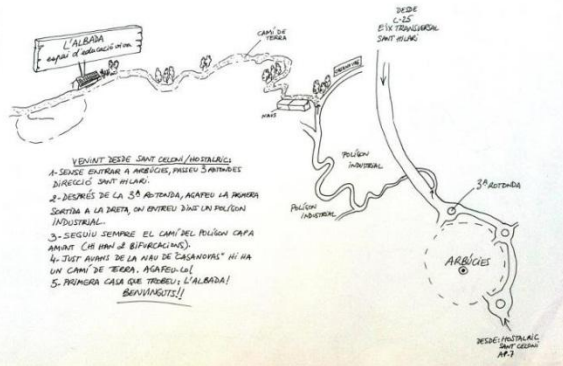 L'ALBADA
espai d'educació viva
CAMÍ DE
TERRA
DESDE
C-25
EIX TRANSVERSAL
SANT HILARI
NAUS
POLÍGON
INDUSTRIAL
POLÍGON
INDUSTRIAL
3ª ROTONDA
ARBÚCIES
DESDE: HOSTALRIC
SANT CELONI
AP-7
VENINT DESDE SANT CELONI/HOSTALRIC:
1- SENSE ENTRAR A ARBÚCIES, PASSEU 3 ROTONDES
DIRECCIÓ SANT HILARI.
2- DESPRÉS DE LA 3ª ROTONDA, AGAFEU LA PRIMERA
SORTIDA A LA DRETA, ON ENTREU DINS UN POLÍGON
INDUSTRIAL.
3- SEGUIU SEMPRE EL CAMÍ DEL POLÍGON CAP A
AMUNT (HI HAN 2 BIFURCACIONS).
4- JUST AVANS DE LA NAU DE "CASANOVAS" HI HA
UN CAMÍ DE TERRA. AGAFEU-LO!
5- PRIMERA CASA QUE TROBEU: L'ALBADA!
BENVINGUTS!!